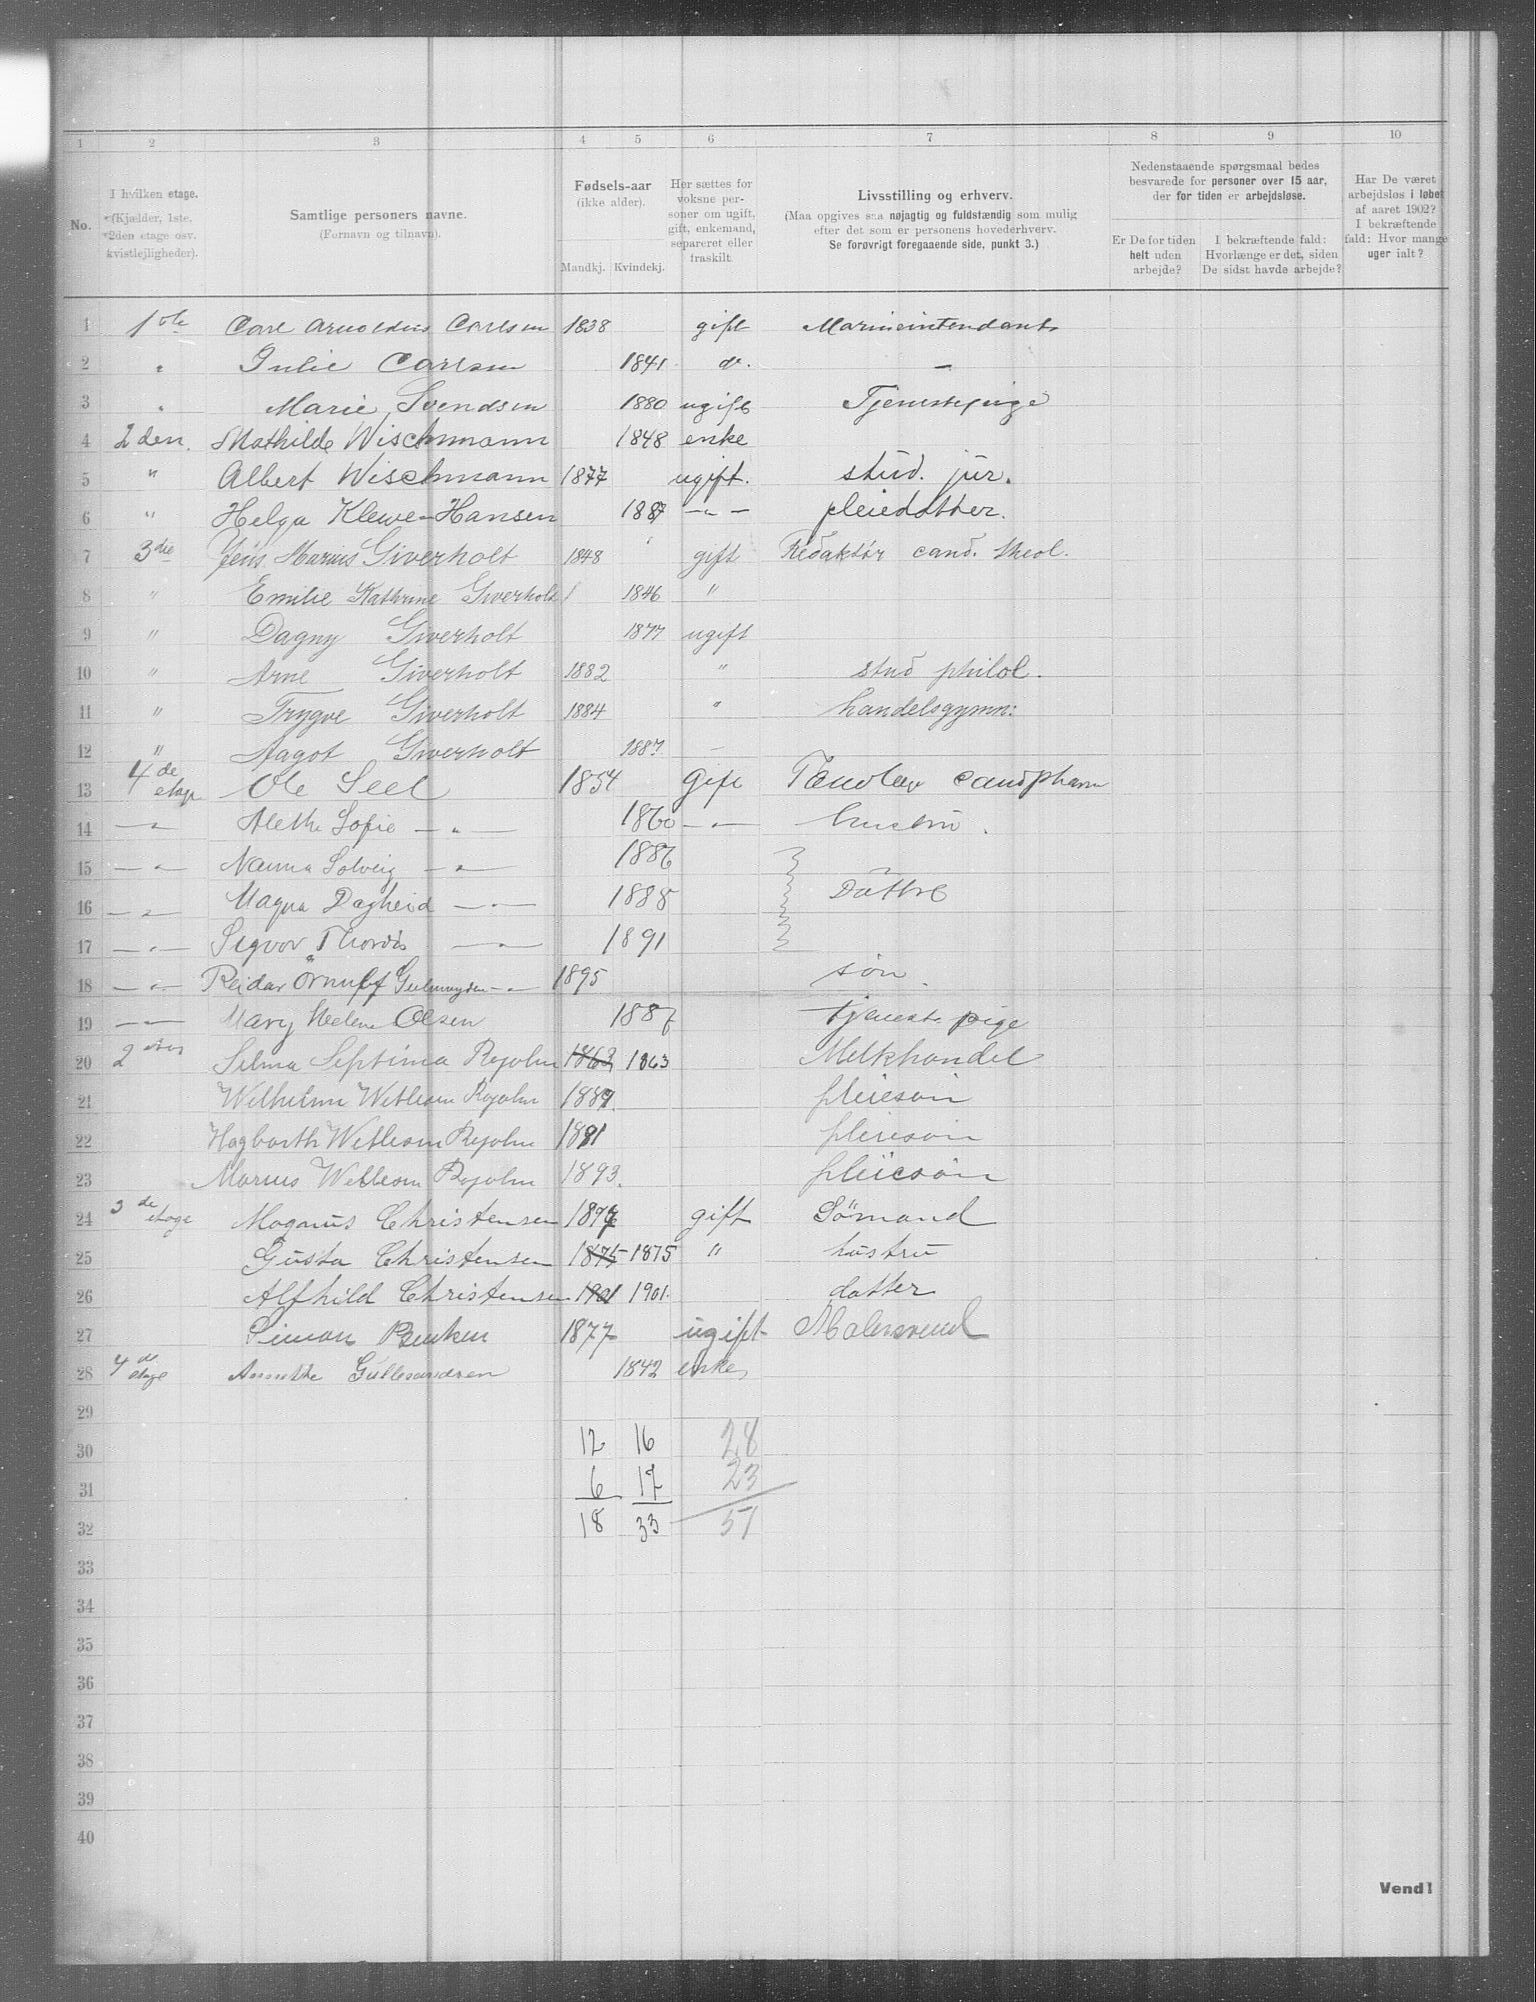 1 2 3 4 5 6 7 8 9 10
No.
I hvilken etage.
(Kjælder, 1ste.
2den etage osv.
kvistlejligheder).
Samtlige personers navne.
(Fornavn og tilnavn).
Fødsels-aar
(ikke alder).
Mandkj. Kvindekj.
Her sættes for
voksne per-
soner om ugift,
gift, enkemand,
separeret eller
fraskilt.
Livsstilling og erhverv.
(Maa opgives saa nøjagtig og fuldstændig som mulig
efter det som er personens hovederhverv.
Se forøvrigt foregaaende side, punkt 3.)
Nedenstaaende spørgsmaal bedes
besvarede for personer over 15 aar,
der for tiden er arbejdsløse.
Er De for tiden
helt uden
arbejde?
I bekræftende fald:
Hvorlænge er det, siden
De sidst havde arbejde?
Har De været
arbejdsløs i løbet
af aaret 1902?
I bekræftende
fald: Hvor mange
uger ialt?
1 1ste Carl Arnoldus Carlsen 1838 gift Marineintendant
2 " Julie Carlsen 1841 do. —
3 " Marie Svendsen 1880 ugift Tjenestepige
4 2den. Mathilde Wischmann 1848 enke
5 " Albert Wischmann 1877 ugift. stud. jur.
6 " Helga Klewe-Hansen 1887 —"— pleiedatter.
7 3die Jens Marius Giverholt 1848 gift Redaktør cand. theol.
8 " Emilie Kathrine Giverholt 1846 "
9 " Dagny Giverholt 1877 ugift
10 " Arne Giverholt 1882 " stud philol.
11 " Trygve Giverholt 1884 " handelsgymn:
12 " Aagot Giverholt 1887 –
13 4de etage Ole Seel 1854 Gift candpharm
14 —"— Alethe Sofie —"— 1860 —"— hustru.
15 —"— Nanna Solveig —"— 1886
16 —"— Magna Dagheid —"— 1888 Døttre
17 —"— Sigvor Thordis —"— 1891
18 —"— Reidar Ørnulf —"— 1895 søn
19 —"— Mary Helene Olsen 1887 tjenestepige
20 2 Selma Septima Rojohn 1863 1863 Melkhandel
21 Wilhelm Rojohn 1889 pleiesøn
22 Hagbarth Rojohn 1891 pleiesøn
23 Marius Rojohn 1893. pleiesøn
24 3de etage Magnus Christensen gift Sømand
25 Gusta Christensen 1875 1875 " hustru
26 Alfhild Christensen 1901 1901. datter
27 Simon 1877 ugift Malersvend
28 4de etage Annethe 1842 enke
29
30 12 16 28
31 6 17 23
32 18 33 51
33
34
35
36
37
38
39
40
Vend!